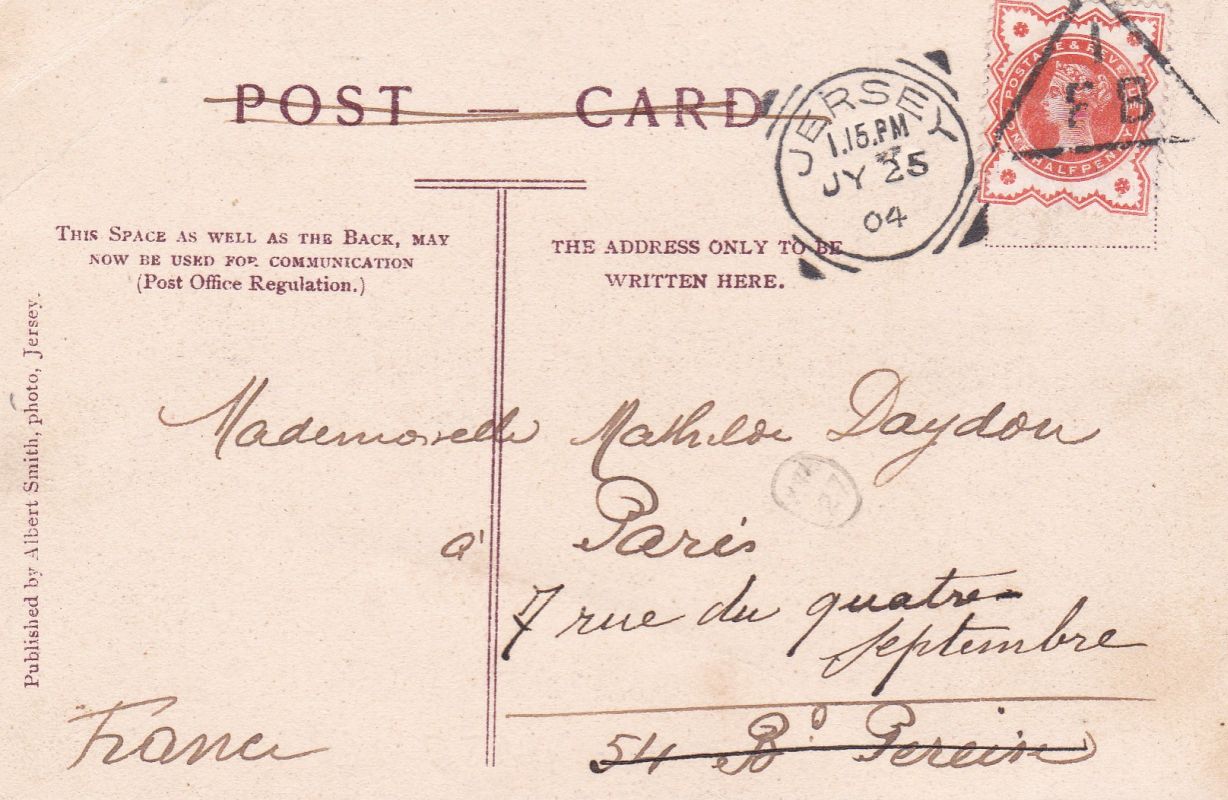 POST — CARD
JERSEY
1.15.PM
JY 25
04
POSTAGE & REVENUE
ONE HALFPENNY
1
F B
THIS SPACE AS WELL AS THE BACK, MAY
NOW BE USED FOR COMMUNICATION
(Post Office Regulation.)
THE ADDRESS ONLY TO BE
WRITTEN HERE.
Published by Albert Smith, photo, Jersey.
Mademoiselle Mathilde Daydou
à Paris
7 rue du quatre-
septembre
54 Bd Pereire
France